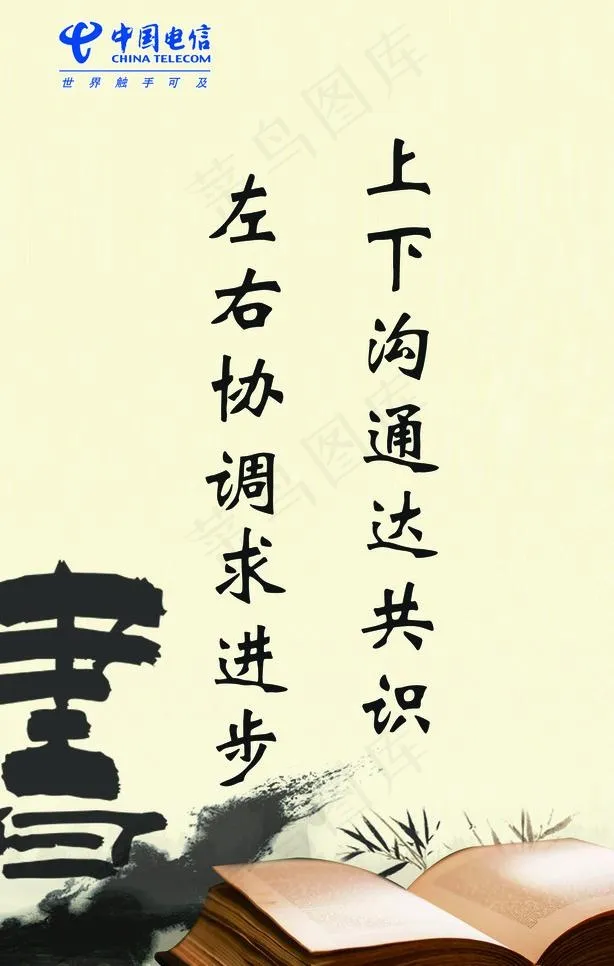 中国电信
CHINA TELECOM
世界触手可及
上下沟通达共识
左右协调求进步
書
菜鸟图库
菜鸟图库
菜鸟图库
菜鸟图库